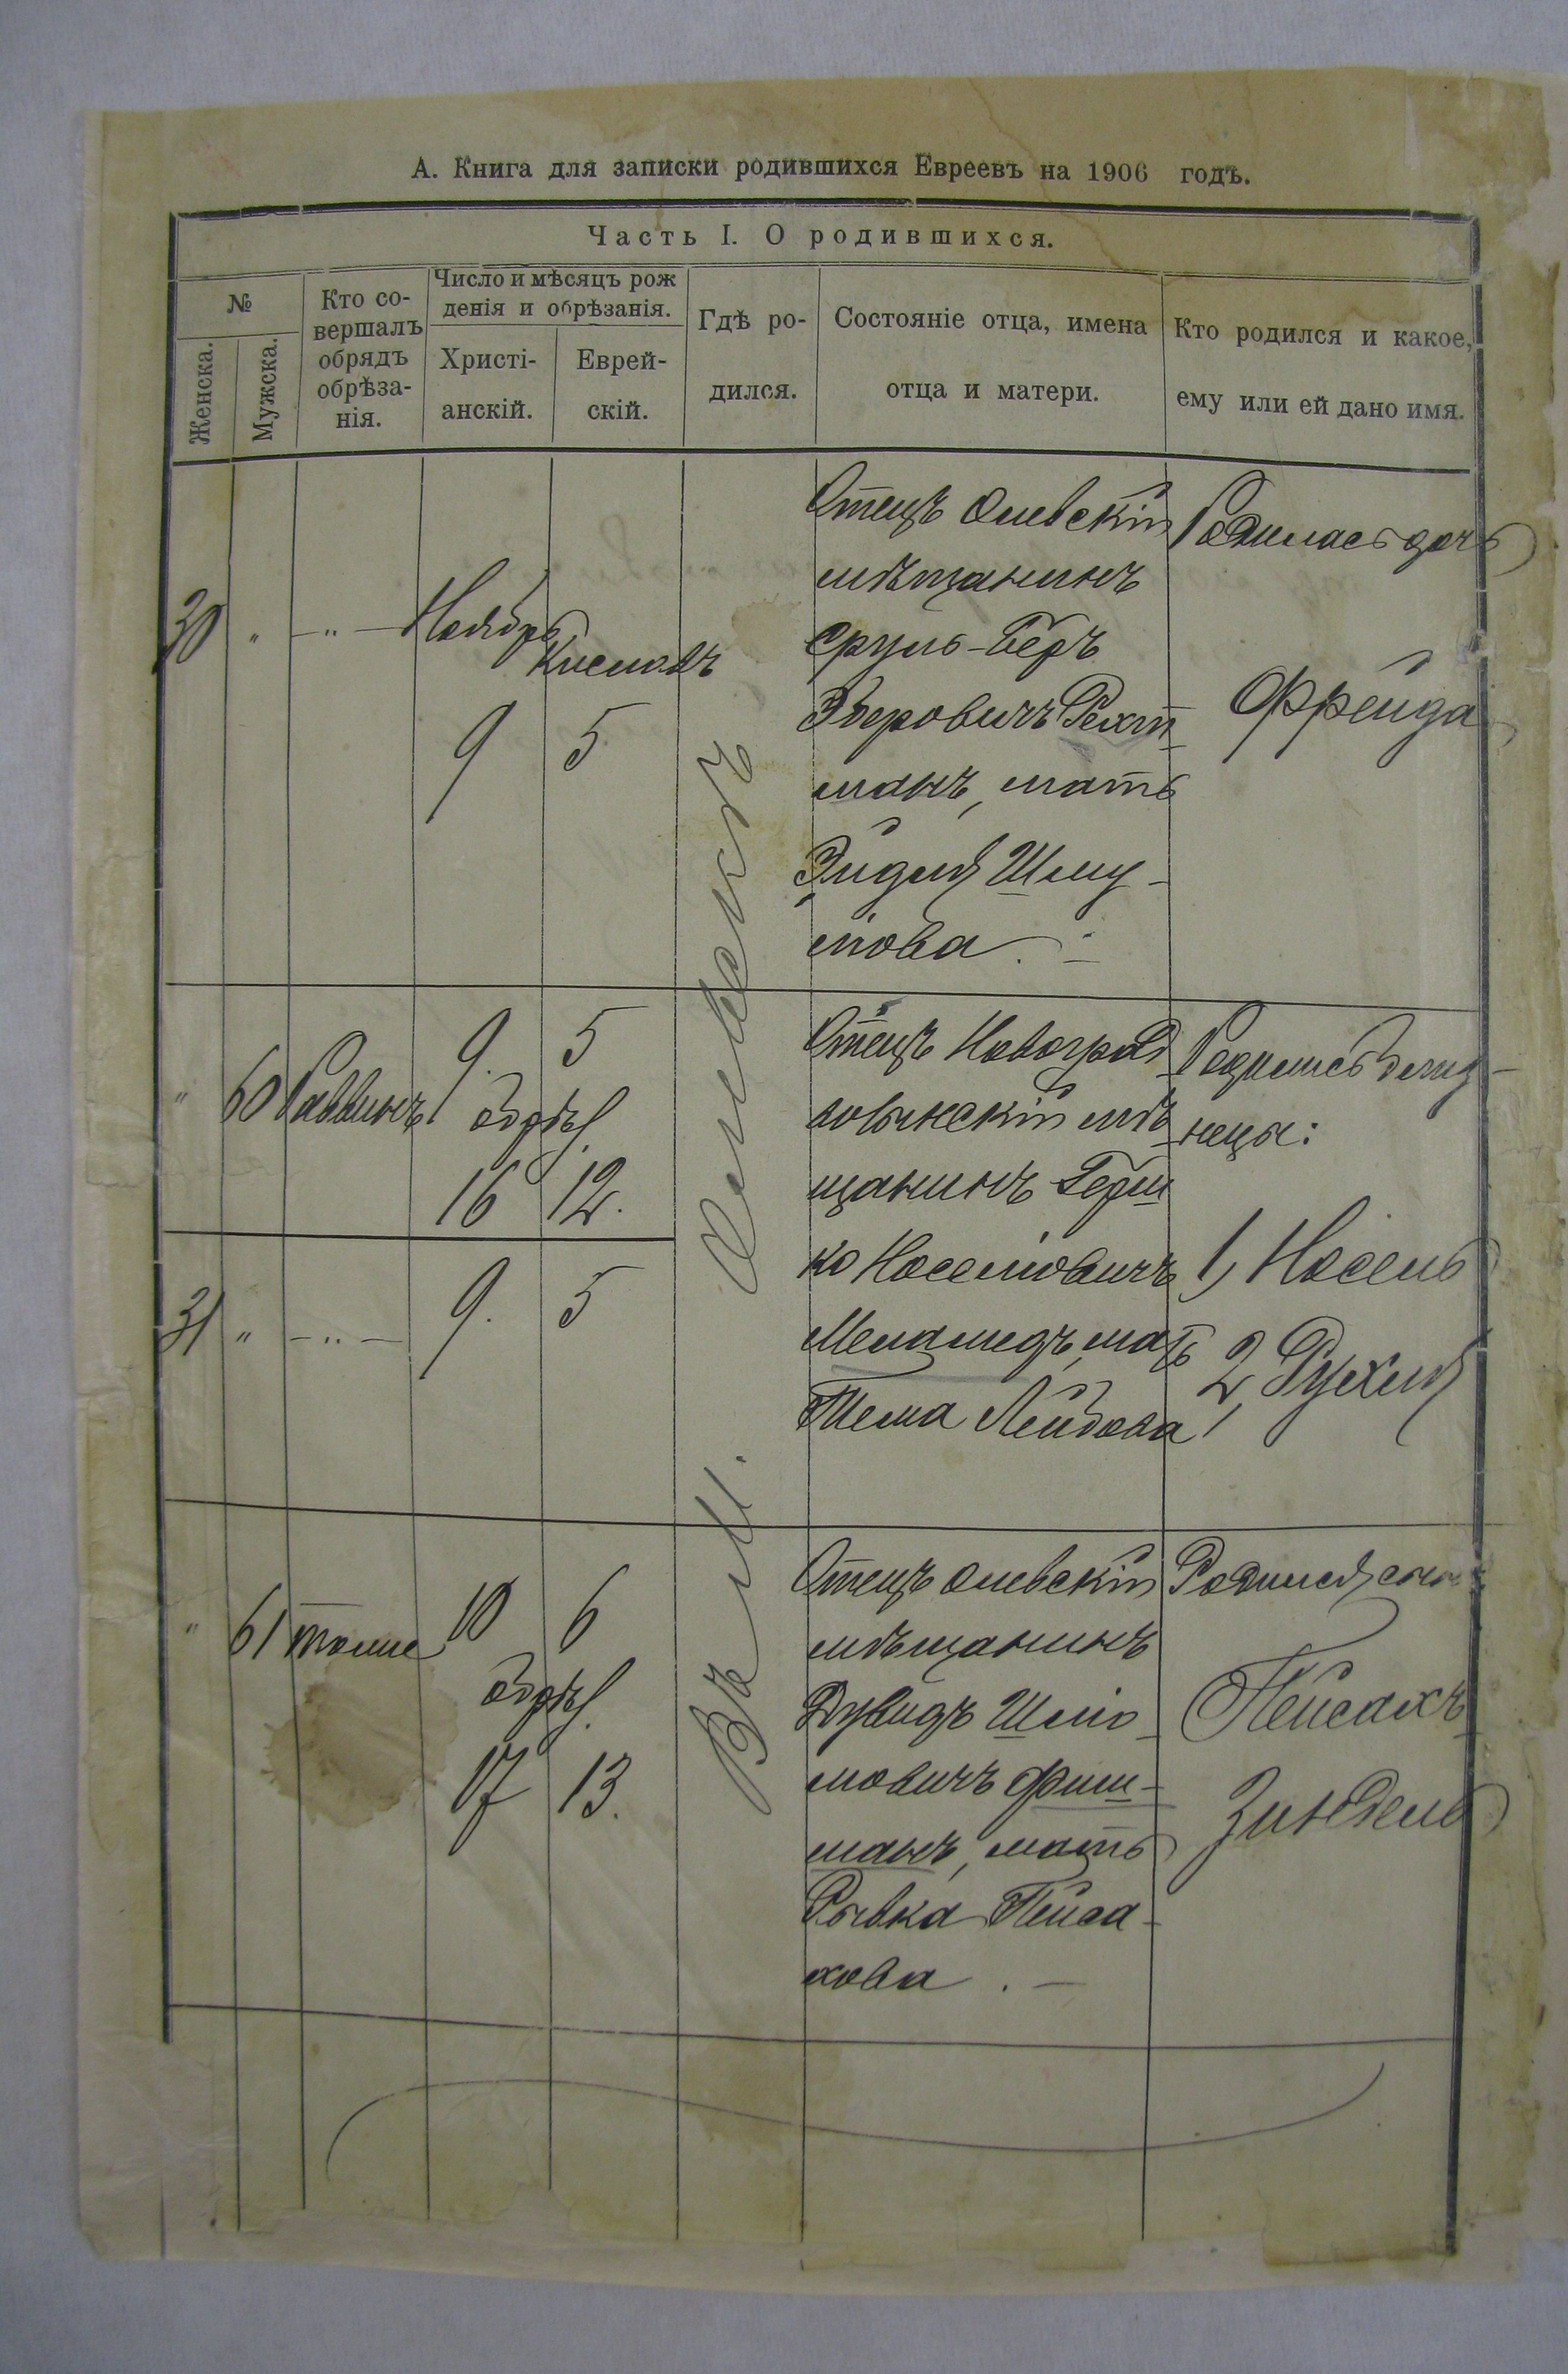 А. Книга для записки родившихся Евреевъ на 1906 годъ.
Часть I. О родившихся.
№
Женска.
Мужска.
Кто со-
вершалъ
обрядъ
обрѣза-
нія.
Число и мѣсяцъ рож
денія и обрѣзанія.
Христі-
анскій.
Еврей-
скій.
Гдѣ ро-
дился.
Состояніе отца, имена
отца и матери.
Кто родился и какое,
ему или ей дано имя.
30 " — " — Ноябрь
Кислевъ
9 5
Отецъ Олевскій
мѣщанинъ
Сруль-Беръ
Рехт-
манъ, мать
Эйдля Шму-
лова. —
Родилась дочь
Фрейда
Въ М. Олевскъ
" 60 Раввинъ 9. 5
обрѣз.
16 12.
31 " — " — 9. 5
Отецъ Новоград
волынскій мѣ-
щанинъ Герш
ко Носелiовичъ
Меламедъ, мать
Тема Лейбова
Родились близ-
нецы:
1, Носель
2, Рухля
" 61 тоже 10 6
обрѣз.
17 13.
Отецъ Олевскій
мѣщанинъ
Дувидъ Шлiо-
мовичъ Фиш-
манъ, мать
Рывка Пейса-
хова. —
Родился сынъ
Пейсахъ-
Зиндель